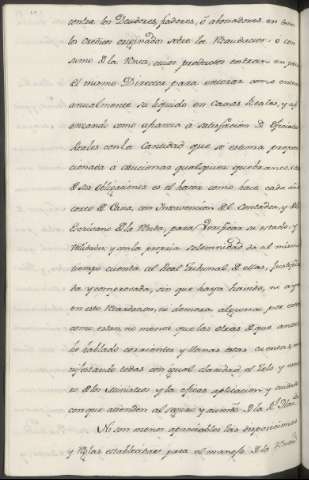 contra los Deudores, fiadores, ó abonadores en
los creditos originados sobre la Recaudacion
sumo de la Renta, cuios productos enterar en
el mismo Director para enterar como entera
anualmente su liquido en Caxas Reales, y
enzando como afianza à satisfaccion de oficiales
Reales con la Cantidad que se estima propor
cionada à caucionar qualquiera quebranto
de sus obligaciones es el hacer como hace cada año
corte de Caxa, con Intervencion del Contador, y el
Escrivano de la Renta, para Verificar su estado, y
y con la propia solemnidad da al mismo
tiempo cuenta al Real Tribunal de ellas, Justifica
da y comprovada, sin que haya havido, ni aya
en este Recaudacion, ni demora alguna por
como estan, no menos que las otras de que
blo tablado corrientes y llanas estas cuentas
todas con igual claridad, el Zelo y
ro de los Ministros y la eficaz aplicacion y cuidado
con que atienden al seguro y aumento de la R.l
No son menos apreciables las disposiciones
y reglas establecidas para el manejo de la Renta